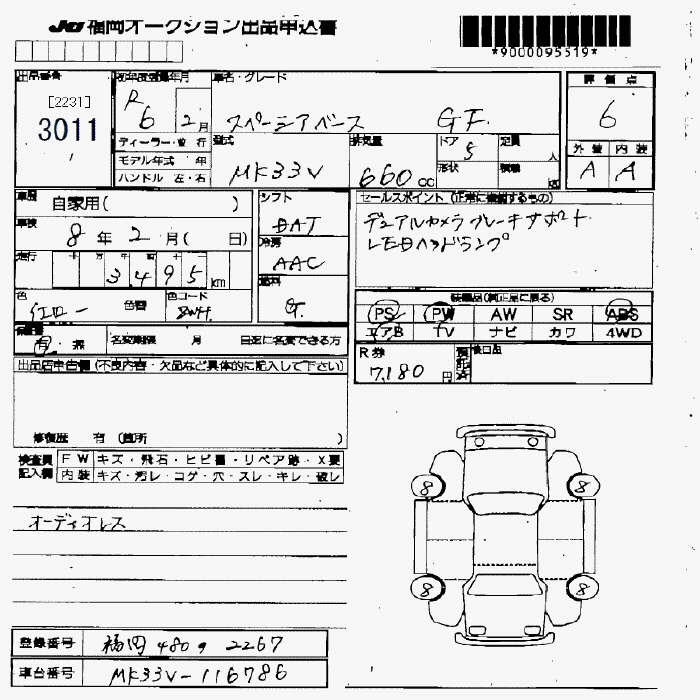 JU 福岡オークション出品申込書
*9000095519*
出品番号 初年度登録年月 車名・グレード 評価点
[2231]
3011
R
6 2月
スペーシアベース GF
6
ディーラー・並行 型式 排気量 ドア 定員 外装 内装
モデル年式 年 MK33V 660cc 5 人 A A
ハンドル 左・右 形状 積載 kg
車歴 自家用( )
シフト DAT
セールスポイント(正常に機能するもの)
デュアルカメラブレーキサポート
LEDヘッドランプ
車検 8年 2月( 日)
冷房 AAC
走行 十 万 千 百 十 3495km
燃料 G
色 イエロー 色替 色コード
装備品(純正品に限る)
PS PW AW SR ABS
エアB TV ナビ カワ 4WD
保証書 有・無 名変期限 月 日迄に名変できる方
R券 7,180円
後日品
出品店申告欄(不良内容・欠品など具体的に記入して下さい)
修復歴 有(箇所 )
検査員記入欄 FW キズ・飛石・ヒビ有・リペア跡・X要
内装 キズ・汚レ・コゲ・穴・スレ・キレ・破レ
8 8
8 8
オーディオレス
登録番号 福岡 480 2267
車台番号 MK33V-116786